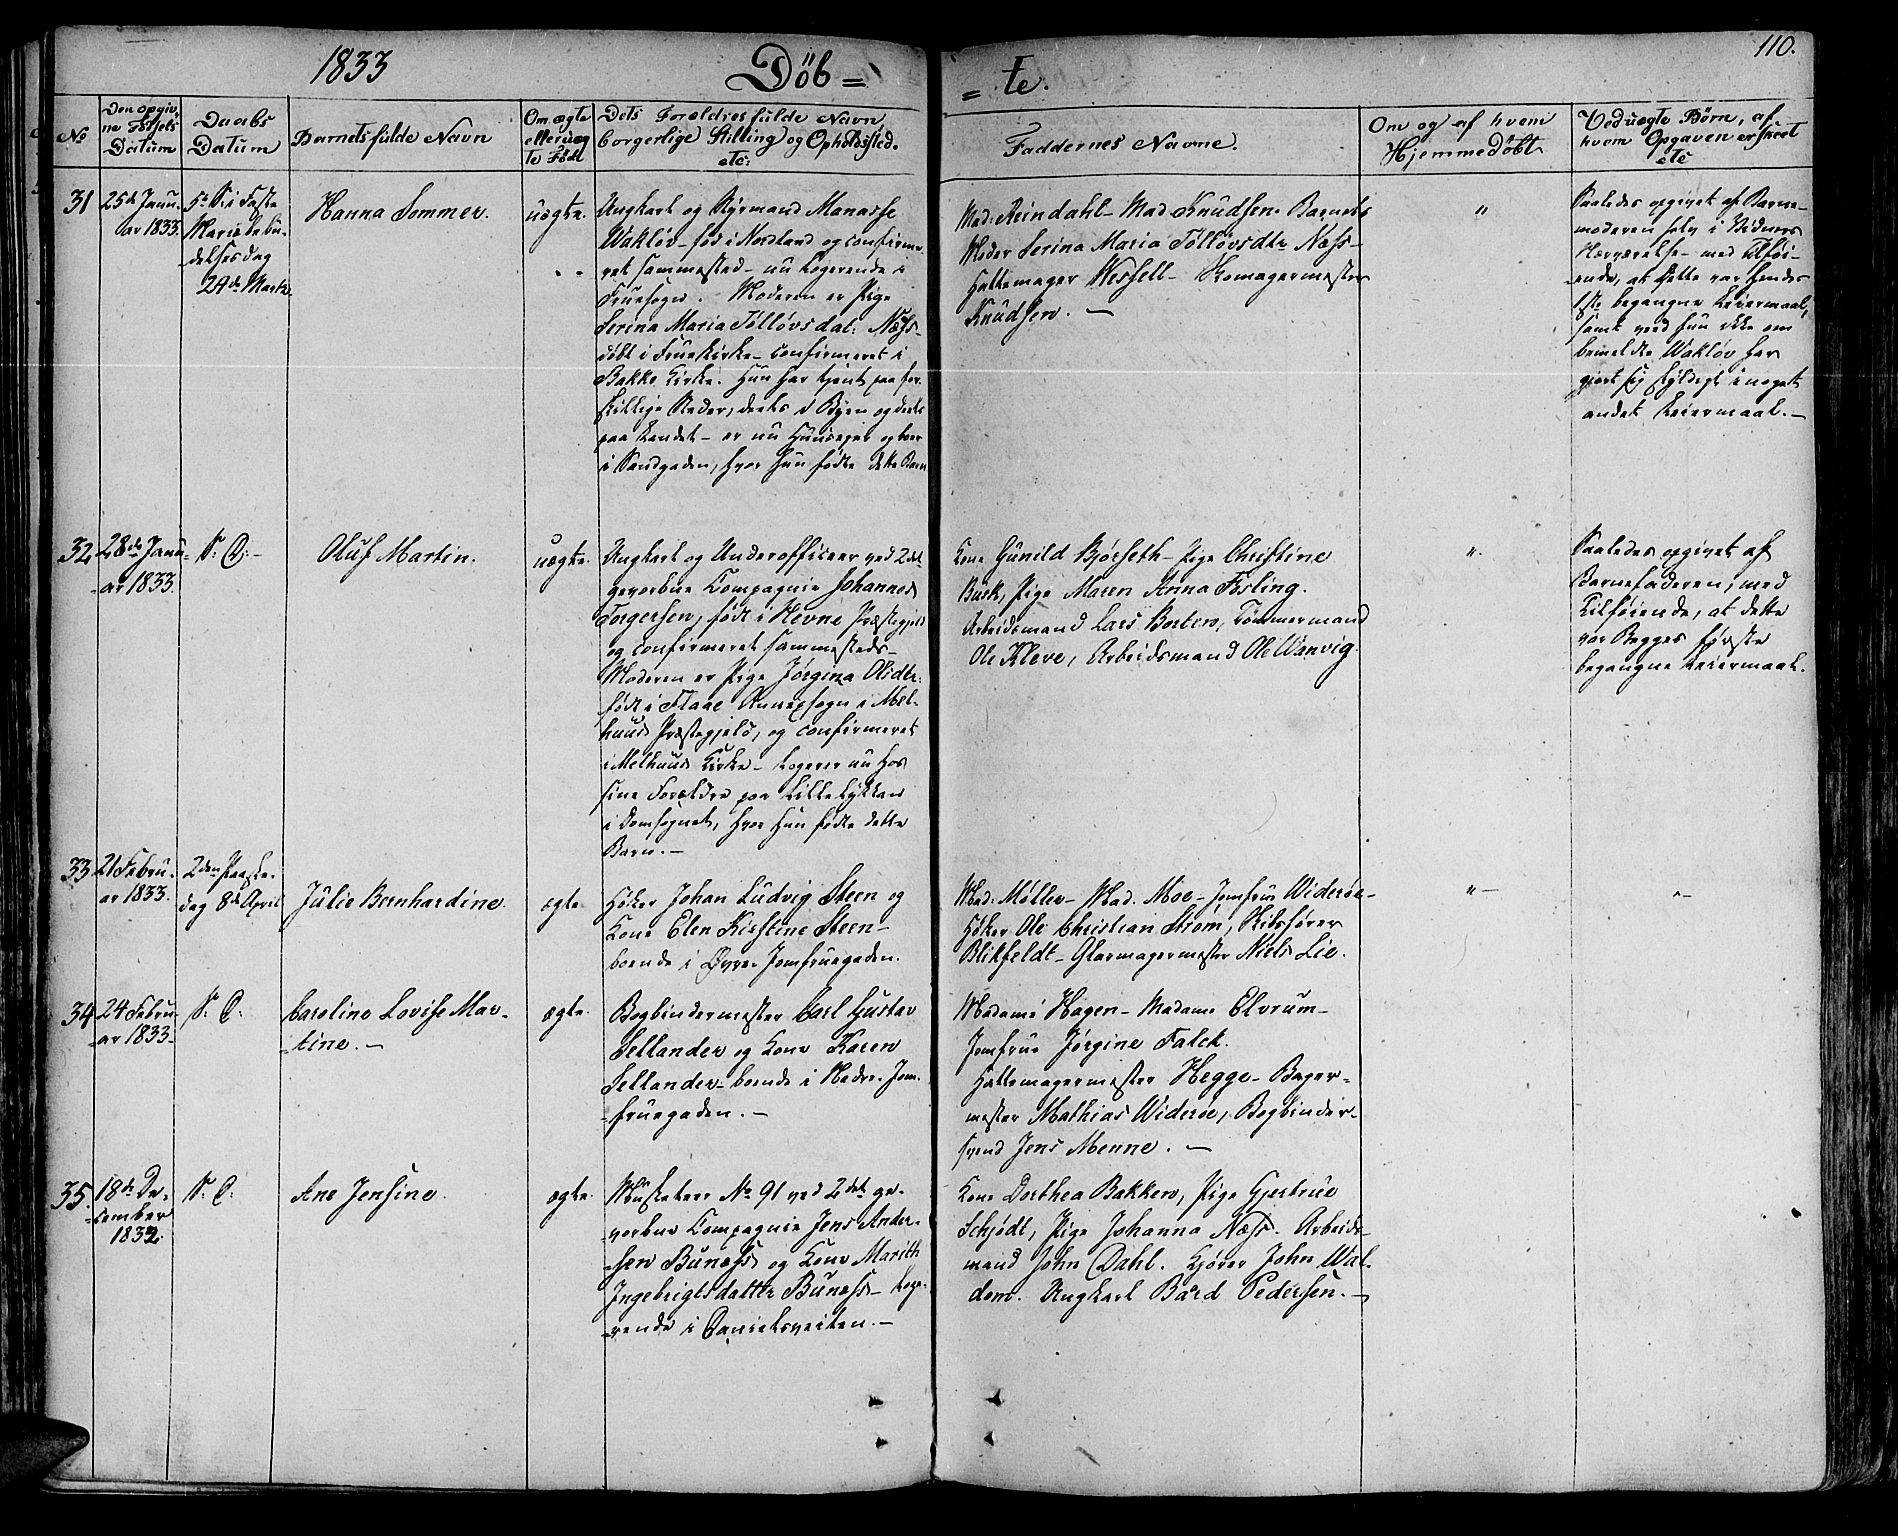 1833
Döb=
=te.
110.
No
Den opgiv-
ne Födsels
Datum
Daabs
Datum
Barnets fulde Navn
Om ægte
eller uæg
te Födt
Dets Forældres fulde Navn
borgerlige Stilling og Opholdssted.
etc:
Faddernes Navne.
Om og af hvem
Hjemmedöbt
Ved uægte Börn, af
hvem Opgaven er skeet
etc
31
25de Janu-
ar 1833.
5te S. i Faste
Mariæ bebu-
delses dag
24de Marts
Hanna Sommer.
uægte.
Ungkarl og Styrmand Manasse
Wakløv - fød i Nordland og confirme-
ret sammested - nu logerende i
Fruesogn. Moderen er Pige
Serina Maria Tølløvsdat: Næss-
døbt i Fruekirke - confirmeret i
Bakke Kirke. Hun har tjent paa for-
skillige Steder, deels i Byen og deels
paa Landet - er nu Huuseier og boer
i Sandgaden, hvor hun fødte dette Barn
Mad: Reindahl - Mad Knudsen. Barnets
Moder Serina Maria Tølløvsdtr Næss-
Hattemager Wessell - Skomagermester
Knudsen. -
"
Saaledes opgivet af Barne-
moderen selv i Vidners
Nærværelse - med Tilföi-
ende, at dette var hendes
1ste begangne Leiermaal,
samt veed hun ikke om
bemeldte Wakløv har
gjort sig skyldig i noget
andet Leiermaal. -
32
28de Janu-
ar 1833.
S: D: -
Oluf Martin.
uægte.
Ungkarl og Underofficeer ved 2det
gevorbne Compagnie Johannes
Torgersen, född i Hevne Præstegjeld
og confirmeret sammesteds -
Moderen er Pige Jørgina Olsdtr.
född i Flaae Annexsogn i Mel-
huus Præstegjeld, og confirmeret
i Melhuus Kirke - logerer nu hos
sine Forældre paa Lillelykken
i Domsognet, hvor hun fødte dette
Barn. -
Kone Gunild Bjørseth - Pige Christine
Buck, Pige Maren Anna Fosling.
Arbeidsmand Lars Borten, Tömmermand
Ole Kleve, Arbeidsmand Ole Wanvig.
"
Saaledes opgivet af
Barnefaderen, med
Tilföiende, at dette
var Begges förste
begangne Leiermaal.
33
21 Febru-
ar 1833.
2den Paaske-
dag 8de April
Julie Bernhardine.
ægte.
Höker Johan Ludvig Steen og
Kone Elen Kirstine Steen -
boende i Øvre Jomfruegaden.
Mad: Møller - Mad. Moe - Jomfrue Widerøe -
Höker Ole Christian Strøm, Skibsfører
Blikfeldt - Glarmagermester Niels Lie.
" -
" -
34
24 Febru-
ar 1833.
S: D:
Caroline Lovise Mar-
-tine. -
ægte.
Bogbindermester Carl Gustav
Sellander og Kone Karen
Sellander - boende i Nedre Jom-
-fruegaden. -
Madame Hagen - Madame Elvrum -
Jomfrue Jørgine Falck.
Hattemagermester Hegge - Bager-
mester Mathias Widerøe, Bogbinder-
svend Jens Menne. -
35.
18de De-
-cember
1832.
S: D:
Ane Jensine.
ægte.
Musketeer No 91 ved 2det ge-
vorbne Compagnie Jens Ander-
-sen Bunæss og Kone Marith
Ingebrigtsdatter Bunæss - loge-
-rende i Danielsveiten. -
Kone Dorthea Bakken, Pige Gjertrue
Schjödt, Pige Johanna Næss. Arbeids-
mand John Dahl. Kjører John Wal-
dem. Ungkarl Baard Pedersen. -